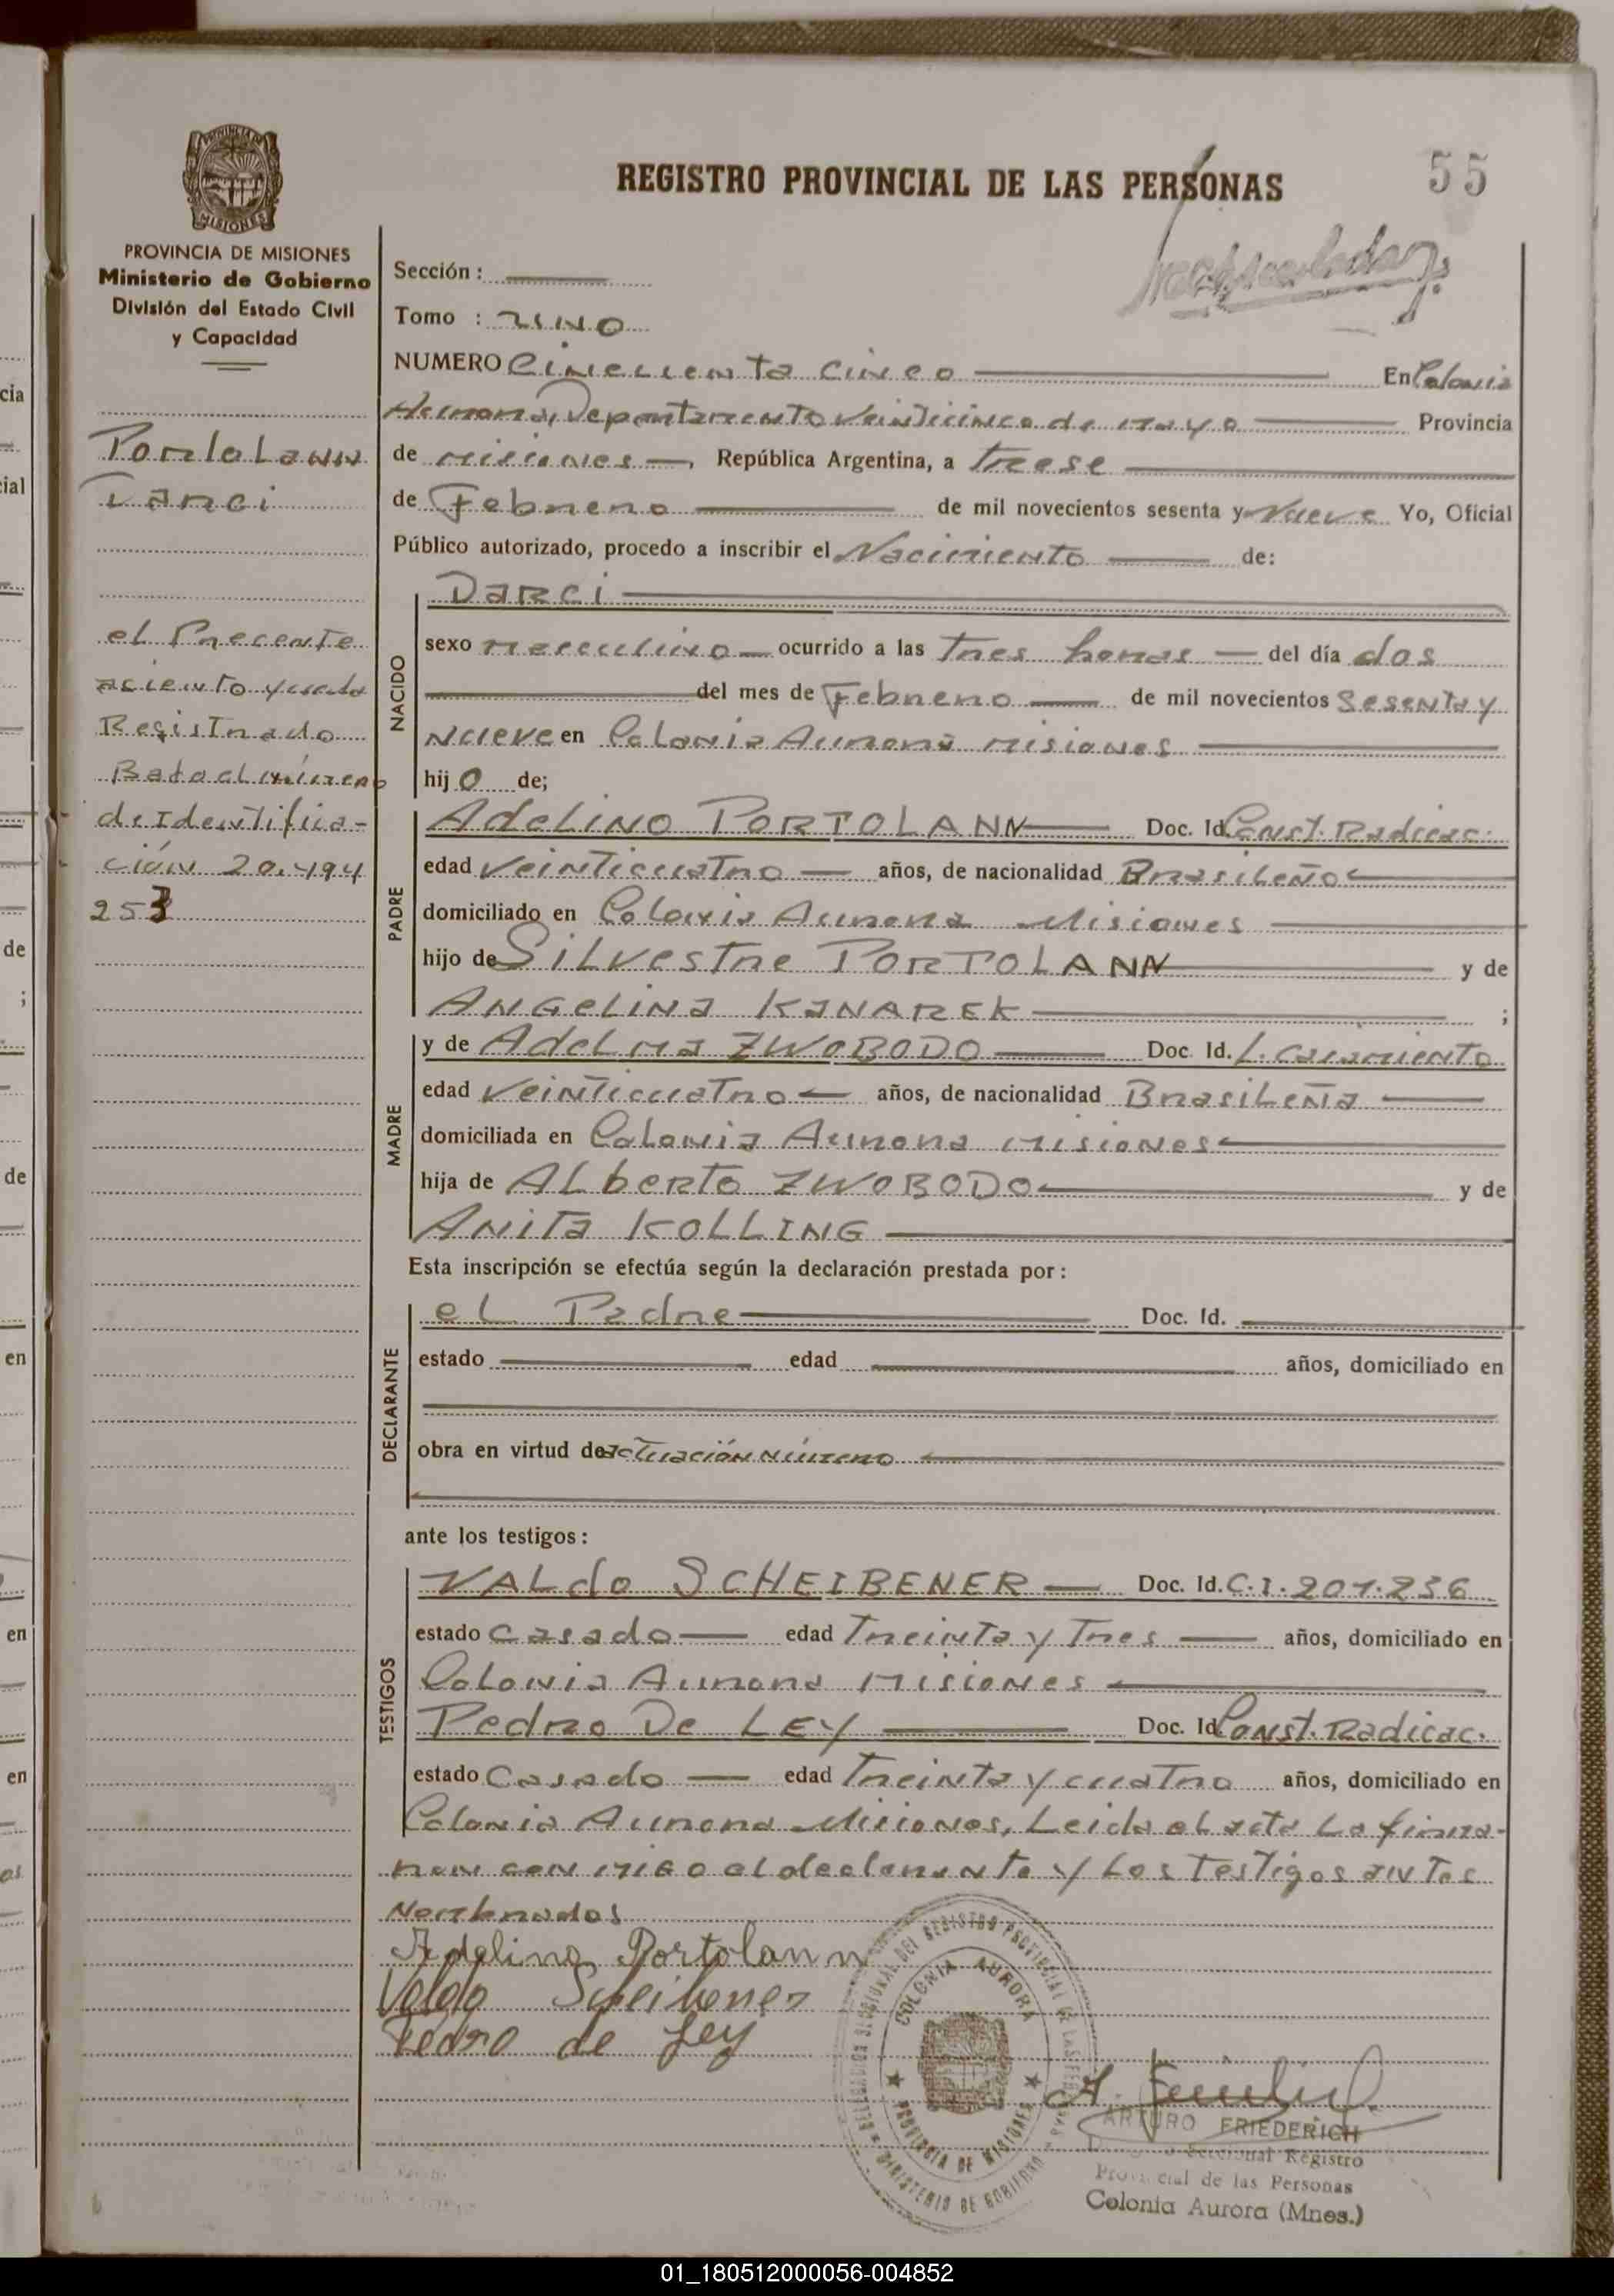 REGISTRO PROVINCIAL DE LAS PERSONAS
55
PROVINCIA DE MISIONES
Ministerio de Gobierno
División del Estado Civil
y Capacidad
Portolann
Darci
el Presente
aciento queda
Registrado
Bajo el número
de Identifica-
ción 20.494
253
Sección :
Tomo : UNO
NUMERO Cincuenta cinco En Colonia
Aurora, Departamento Veinticinco de mayo Provincia
de misiones República Argentina, a trese
de Febrero de mil novecientos sesenta y Nueve Yo, Oficial
Público autorizado, procedo a inscribir el Nacimiento de:
NACIDO
Darci
sexo masculino ocurrido a las Tres horas del día dos
del mes de Febrero de mil novecientos Sesenta y
Nueve en Colonia Aurora misiones
hijo de;
PADRE
Adelino PORTOLANN Doc. Id. Const. Radicac.
edad Veinticuatro años, de nacionalidad Brasileño
domiciliado en Colonia Aurora Misiones
hijo de Silvestre PORTOLANN y de
ANGELINA KANAREK ;
MADRE
y de Adelma ZWOBODO Doc. Id. L. Casamiento
edad Veinticuatro años, de nacionalidad Brasileña
domiciliada en Colonia Aurora misiones
hija de ALberto ZWOBODO y de
Anita KOLLING
Esta inscripción se efectúa según la declaración prestada por :
DECLARANTE
el Padre Doc. Id.
estado edad años, domiciliado en
obra en virtud de actuación número
ante los testigos :
TESTIGOS
VALdo SCHEIBENER Doc. Id. C.I. 201.236
estado casado edad Treinta y Tres años, domiciliado en
Colonia Aurora Misiones
Pedro De LEY Doc. Id. Const. Radicac.
estado Casado edad Treinta y cuatro años, domiciliado en
Colonia Aurora Misiones, Leida el acta La firma-
ron con migo el declarante y Los Testigos antes
Nombrados
Adelino Portolann
Valdo Scheibener
Pedro de Ley
DELEGACION SECCIONAL DEL REGISTRO PROVINCIAL DE LAS PERSONAS
COLONIA AURORA
PROVINCIA DE MISIONES
MINISTERIO DE GOBIERNO
ARTURO FRIEDERICH
Seccional Registro
Provincial de las Personas
Colonia Aurora (Mnes.)
cia
cial
de
;
de
en
en
en
01_180512000056-004852